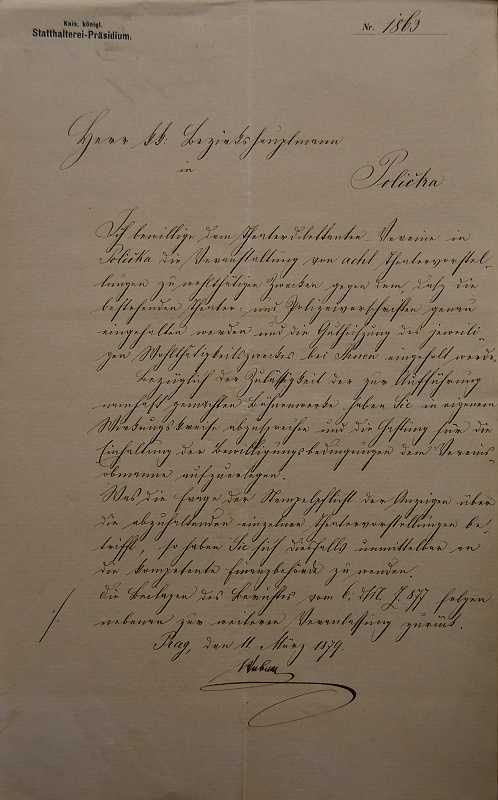 Kais. königl.
Statthalterei-Präsidium.
Nr. 1863
Herr kk. Bezirkshauptmann
in
Polička
Ich bewillige dem Theaterdilettanten-Vereine in
Polička die Veranstaltung von acht Theatervorstel-
lungen zu wohlthätigen Zwecken gegen dem, dasz die
bestehenden Theater- und Polizeivorschriften genau
eingehalten werden und die Gutheiszung des jeweili-
gen Wohlthätigkeitszweckes bei Ihnen eingeholt werde.
Bezüglich der Zulässigkeit der zur Aufführung
namhaft gemachten Bühnenwerke haben Sie in eigenem
Wirkungskreise abzusprechen und die Haftung für die
Einhaltung der Bewilligungsbedingungen dem Vereins-
obmanne aufzuerlegen.
Was die Frage der Stempelpflicht der Anzeigen über
die abzuhaltenden einzelnen Theatervorstellungen be-
trifft, so haben Sie sich diesfalls unmittelbar an
die kompetente Finanzbehörde zu wenden.
Die Beilagen des Berichtes vom 6. d. M. Z. 877 folgen
nebenan zur weiteren Veranlassung zurück.
Prag, den 11. März 1879.